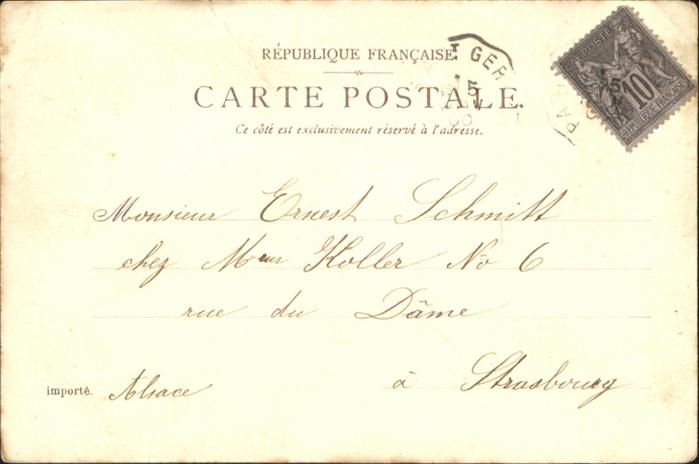 RÉPUBLIQUE FRANÇAISE.
CARTE POSTALE.
Ce côté est exclusivement réservé à l'adresse.
GER
5
PA
POSTE
10
RÉPUBLIQUE FRANÇAISE
Monsieur Ernest Schmitt
chez Meur Koller No 6
rue du Dâme
importé. Alsace à Strasbourg